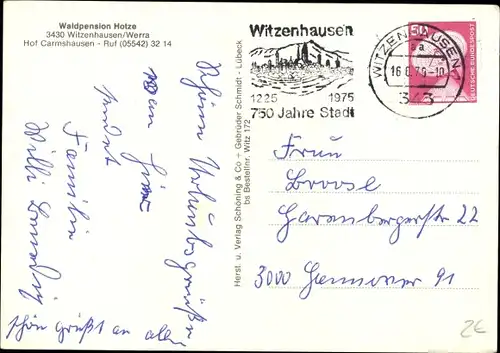 Waldpension Hotze
3430 Witzenhausen/Werra
Hof Carmshausen - Ruf (05542) 32 14
Schöne Urlaubsgrüße
von hier
sendet
Familie
Willi
schön grüßt an alle
Herst. u. Verlag Schöning & Co + Gebrüder Schmidt - Lübeck
bs Bestellnr. Witz 172
Witzenhausen
1225 1975
750 Jahre Stadt
WITZENHAUSEN
16.6.76-10
343
50
DEUTSCHE BUNDESPOST
Frau
Broose
22
3000 Hannover 91
2€